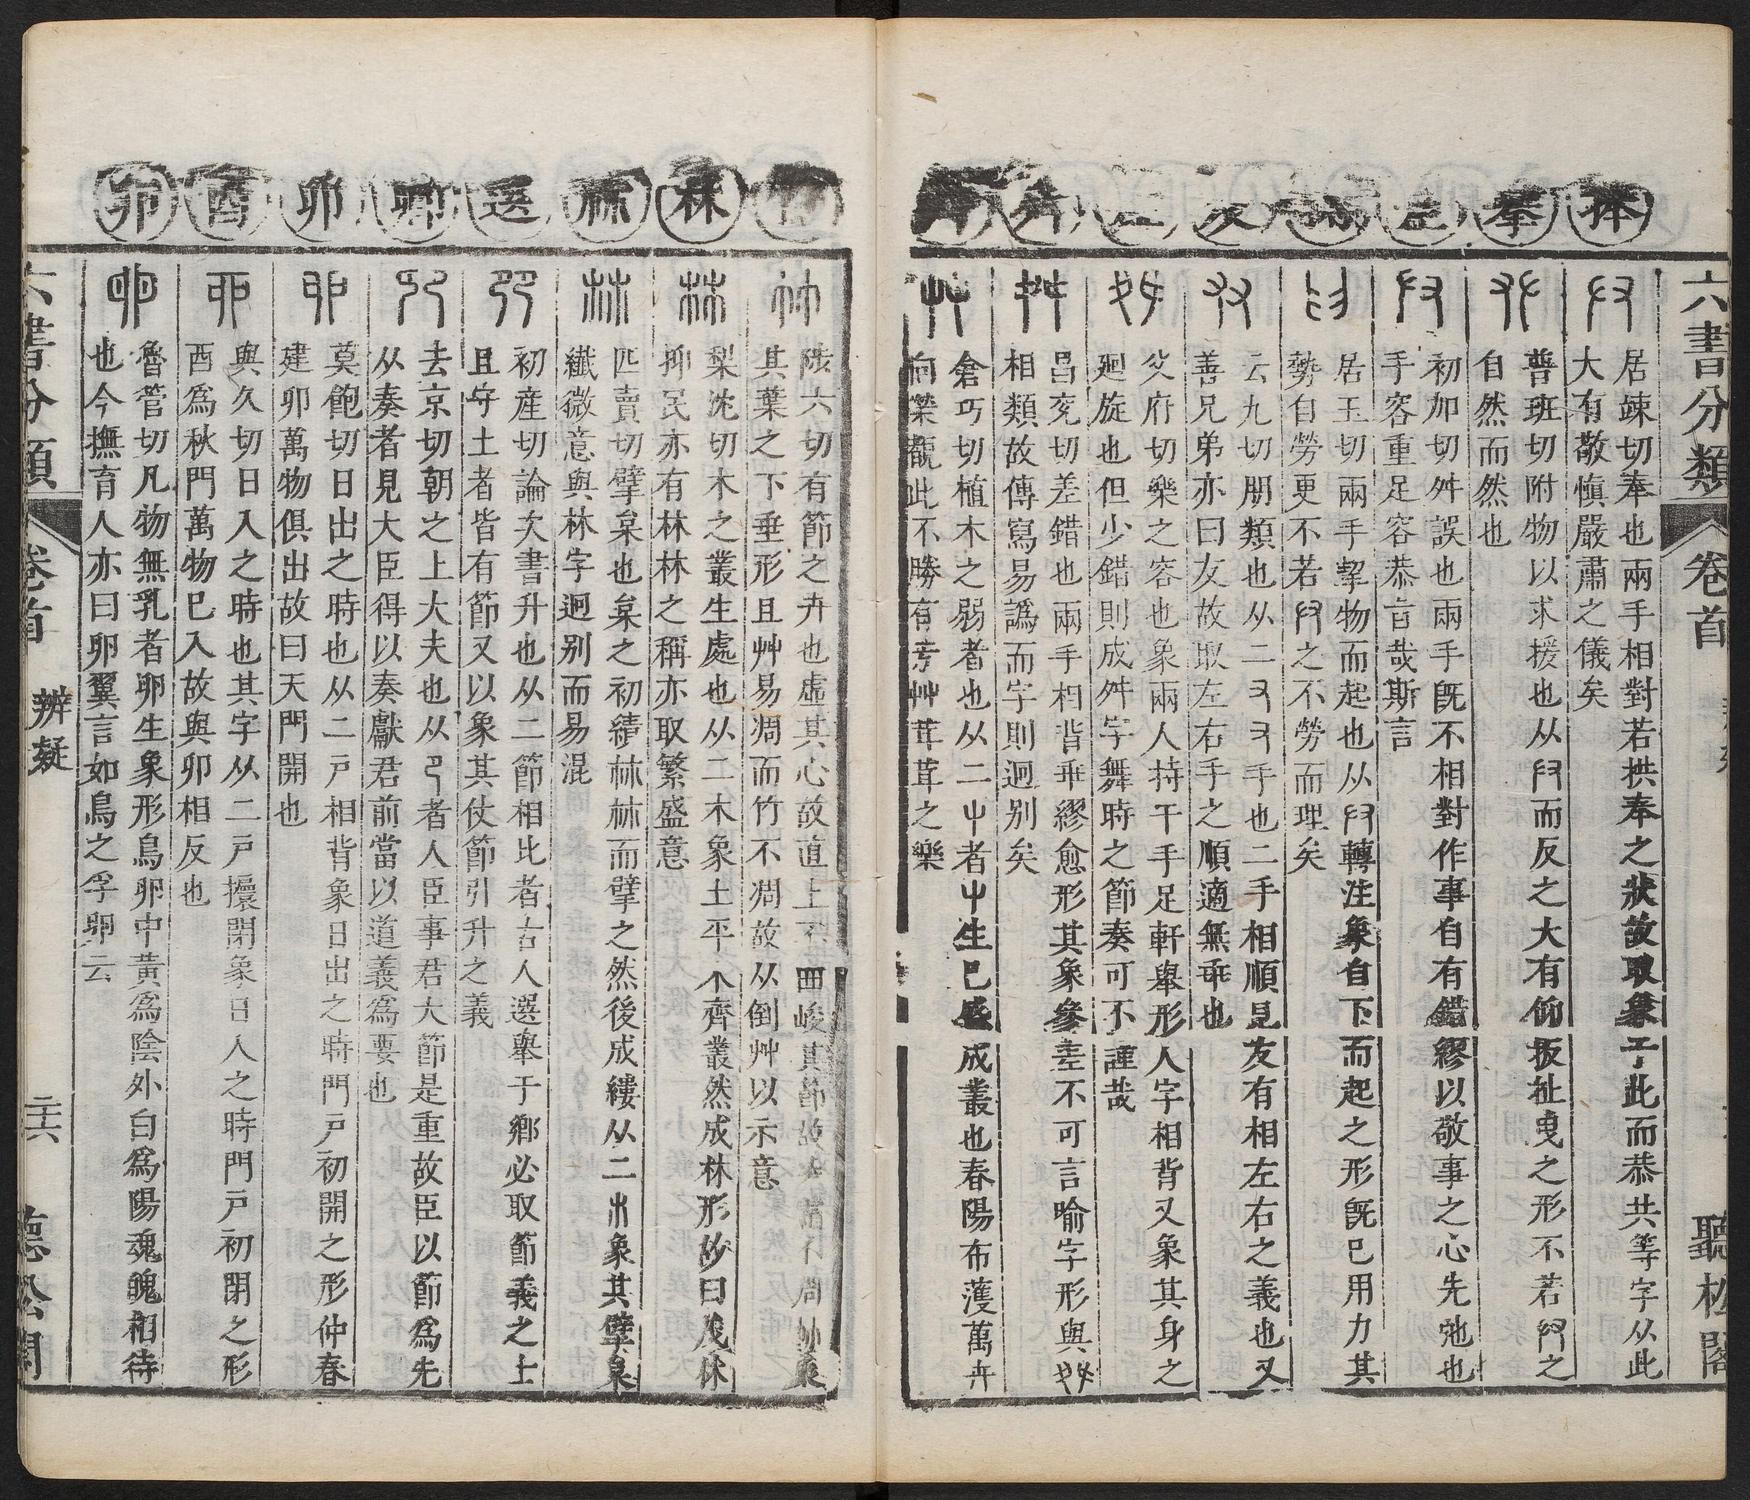 六書分類
卷首
聽松閣
拲
居竦切奉也兩手相對若拱奉之狀故取象于此而恭共等字从此
大有敬慎嚴肅之儀矣
普班切附物以求援也从𦥑而反之大有仰扳扯曳之形不若𦥑之
自然而然也
初加切舛誤也兩手旣不相對作事自有錯繆以敬事之心先弛也
手容重足容恭旨哉斯言
居玉切兩手挈物而起也从𦥑轉注象自下而起之形旣已用力其
勢自勞更不若𦥑之不勞而理矣
云九切朋類也从二又又手也二手相順見友有相左右之義也又
善兄弟亦曰友故取左右手之順適無乖也
文府切樂之容也象兩人持干手足軒舉形人字相背又象其身之
廻旋也但少錯則成舛字舞時之節奏可不謹哉
昌兖切差錯也兩手相背乖繆愈形其象參差不可言喻字形與
相類故傳寫易譌而字則迥别矣
倉巧切植木之弱者也从二屮者屮生已盛成叢也春陽布濩萬卉
向榮觀此不勝有芳艸茸茸之樂
林
𣏟
選
卿
卯
酉
卵
陟六切有節之卉也虛其心故直上
其葉之下垂形且艸易凋而竹不凋故从倒艸以示意
梨沈切木之叢生處也从二木象土平木齊叢然成林形故曰茂林
抑民亦有林林之稱亦取繁盛意
匹賣切擘枲也枲之初績𣏟𣏟而擘之然後成縷从二𣎳象其擘枲
纖微意與林字迥别而易混
初産切論次書升也从二節相比者古人選舉于鄉必取節義之士
且守土者皆有節又以象其仗節引升之義
去京切朝之上大夫也从卩者人臣事君大節是重故臣以節爲先
从奏者見大臣得以奏獻君前當以道義爲要也
莫飽切日出之時也从二戸相背象日出之時門戸初開之形仲春
建卯萬物俱出故曰天門開也
與久切日入之時也其字从二戸擐閉象日入之時門戸初閉之形
酉爲秋門萬物已入故與卯相反也
魯管切凡物無乳者卵生象形鳥卵中黄爲陰外白爲陽魂魄相待
也今撫育人亦曰卵翼言如鳥之孚卵云
六書分類
卷首
辨疑
二六
聽松閣